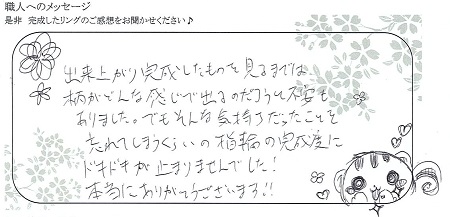 職人へのメッセージ
是非 完成したリングのご感想をお聞かせください♪
出来上がり完成したものを見るまでは
柄がどんな感じで出るのだろうって不安も
ありました。でもそんな気持ちだったことを
忘れてしまうくらいの指輪の完成度に
ドキドキが止まりませんでした!
本当にありがとうございます!!